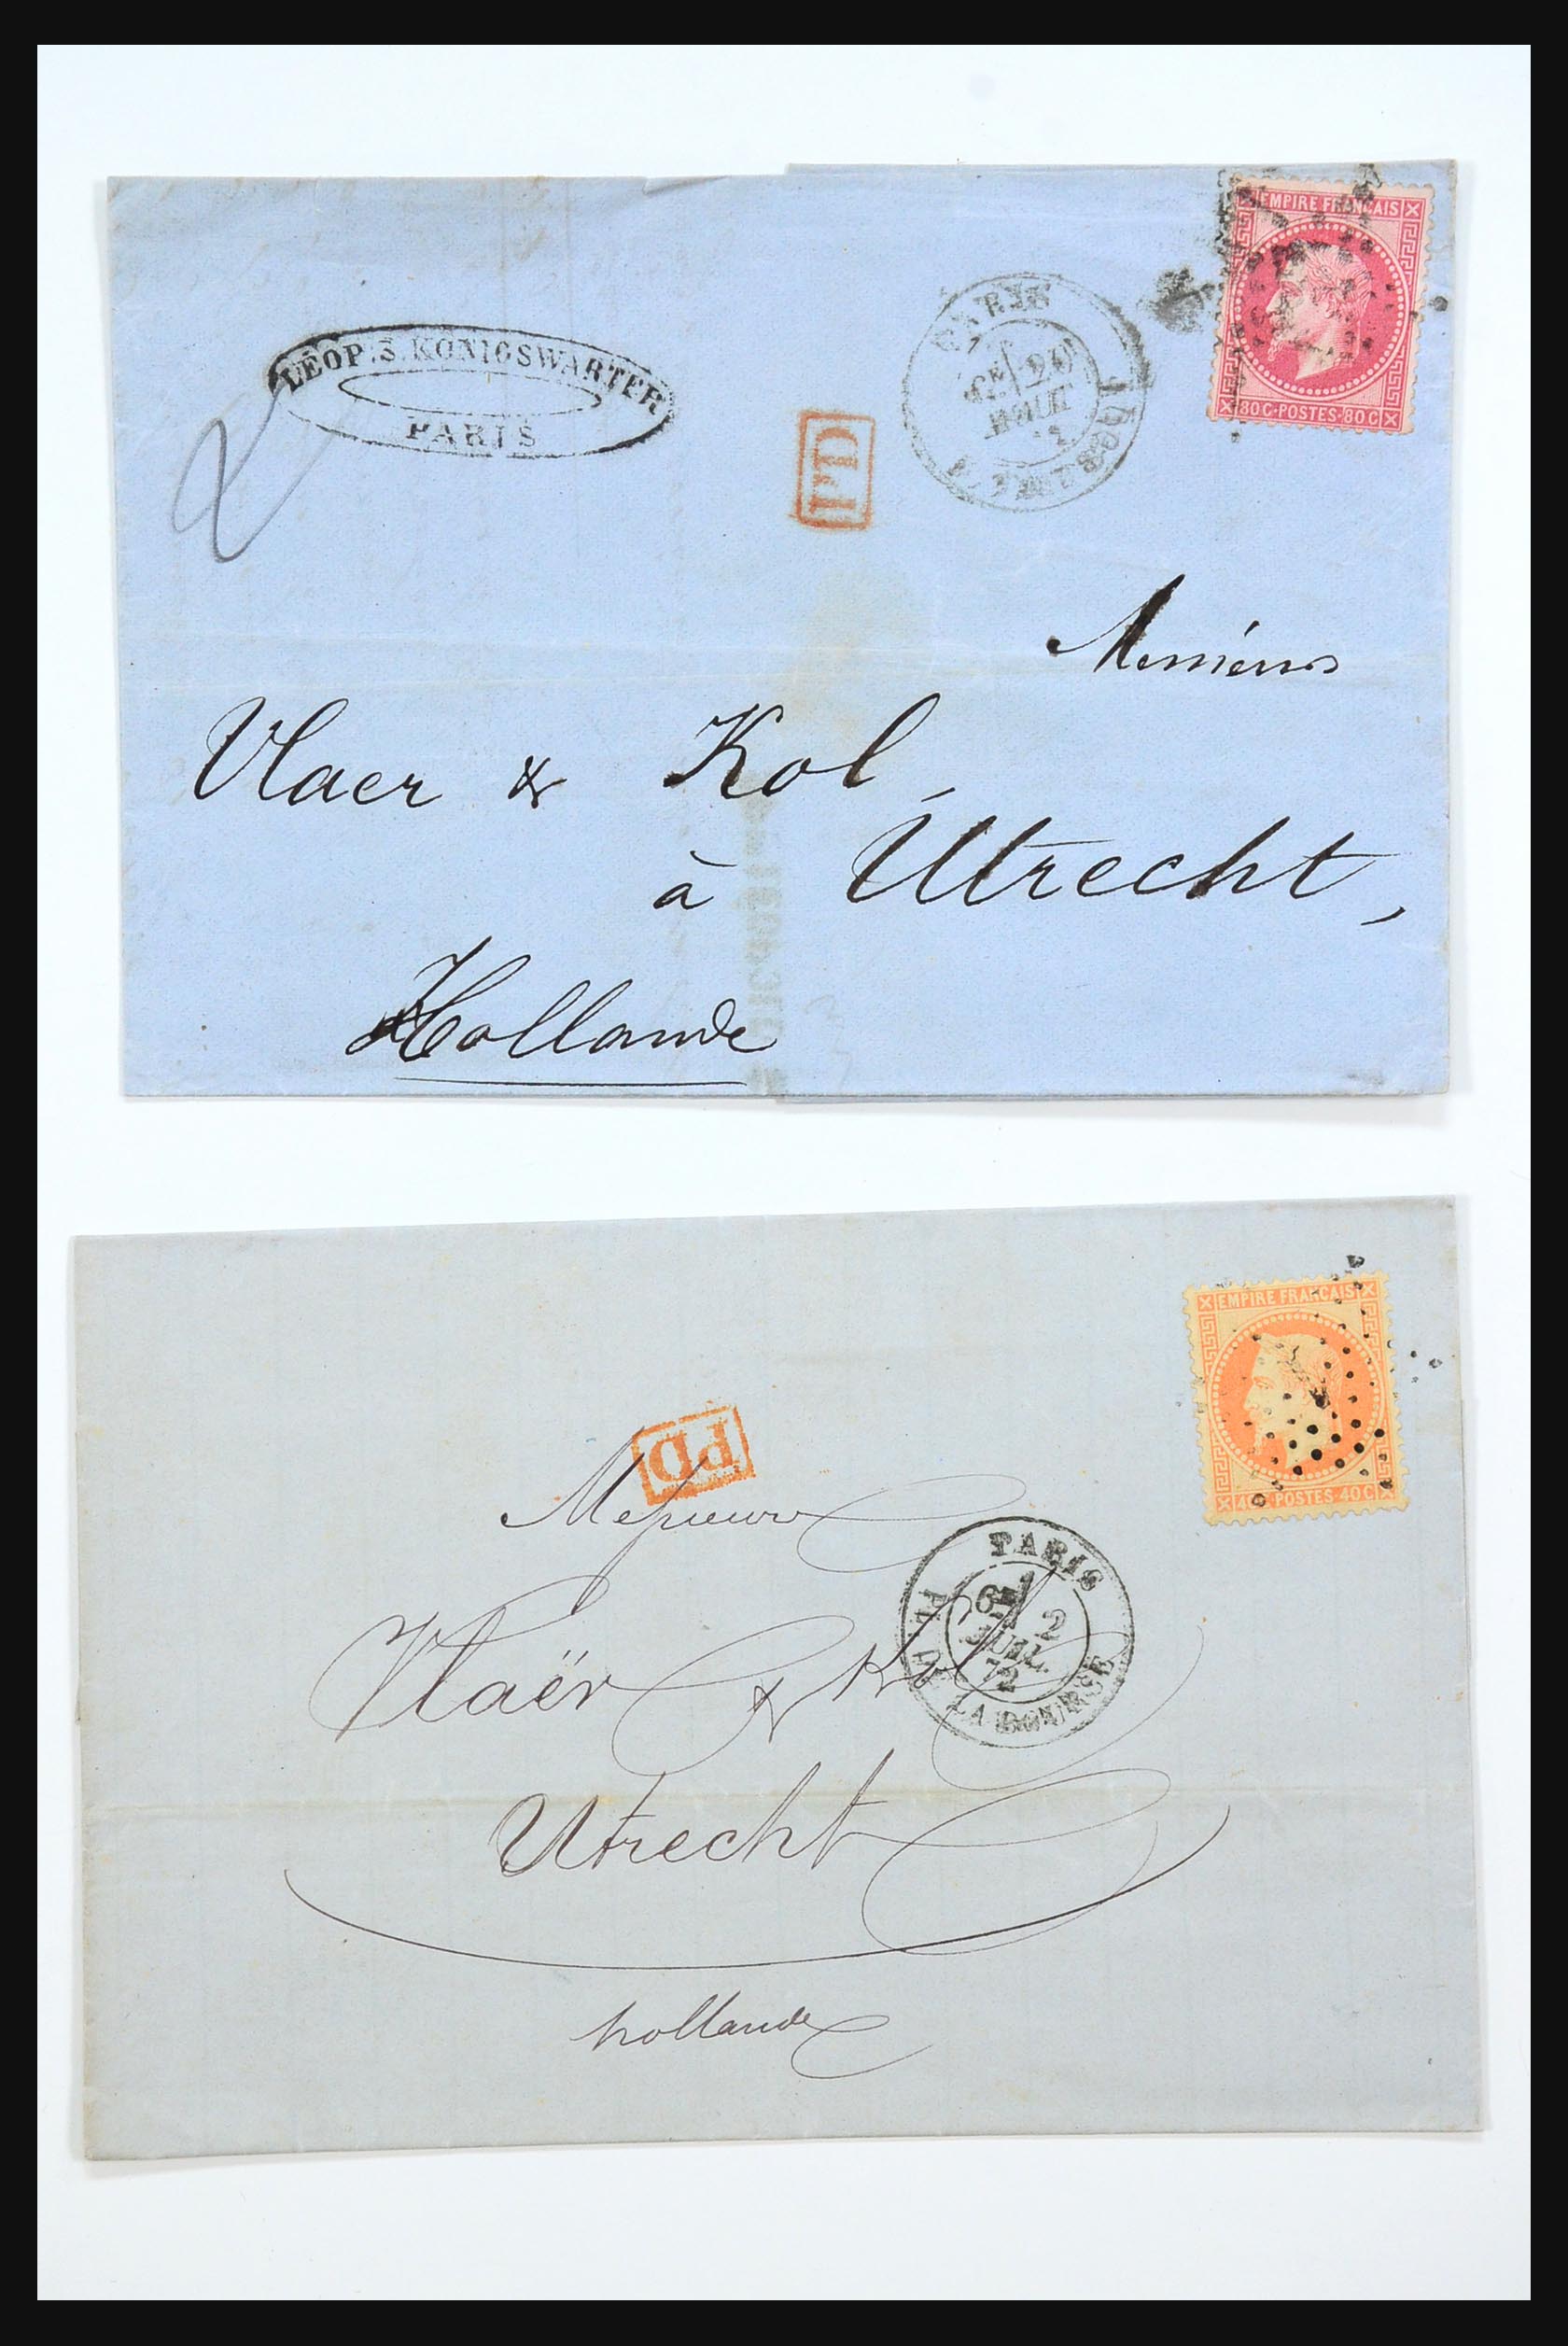 EMPIRE FRANÇAIS
80C·POSTES·80C
LÉOP. S. KÖNIGSWARTER
PARIS
PARIS
20
AOUT
PD
2
Messieurs
Vlaer & Kol,
à Utrecht,
Hollande
EMPIRE FRANÇAIS
40C POSTES·40C
PD
Messieurs
PARIS
2
JUIL.
72
PL. DE LA BOURSE
Vlaër & Kol
Utrecht
hollande